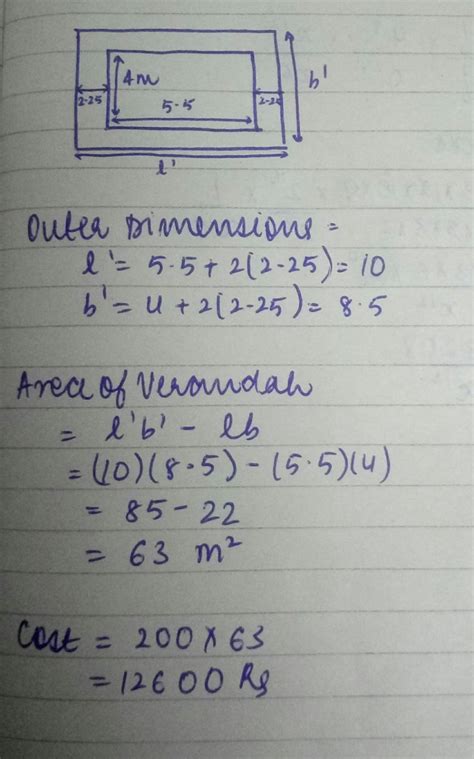 4m
b'
2-25
5.5
2-25
l'
Outer Dimensions =
l' = 5.5 + 2(2-25) = 10
b' = 4 + 2(2-25) = 8.5
Area of Verandah
= l'b' - lb
= (10)(8.5) - (5.5)(4)
= 85 - 22
= 63 m²
Cost = 200 x 63
= 12600 Rs